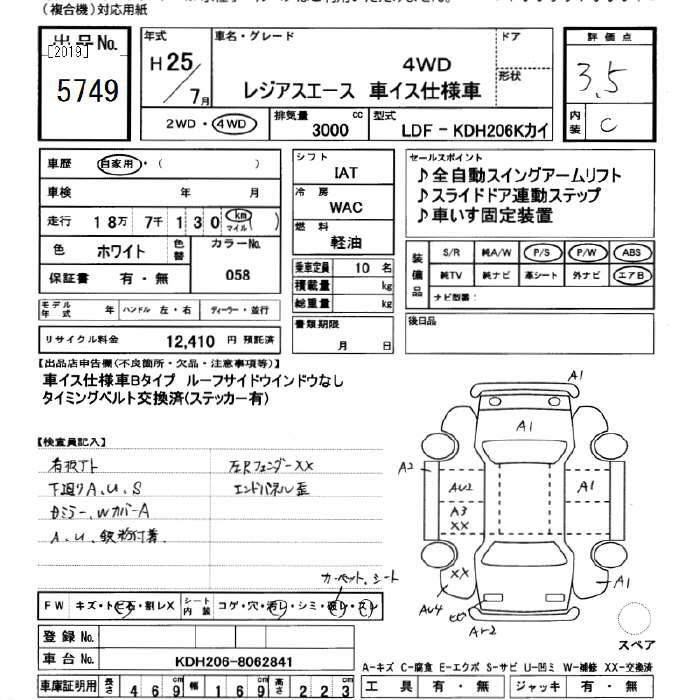 (複合機)対応用紙
出品No.
[2019]
5749
年式
H25/7月
車名・グレード
4WD
レジアスエース 車イス仕様車
ドア
形状
評価点
3.5
内装
C
2WD・4WD
排気量
3000 cc
型式
LDF-KDH206Kカイ
車歴 自家用・( )
車検 年 月
走行 18万 7千 130 km マイル ( )
色 ホワイト 色替
カラーNo.
058
保証書 有・無
シフト
IAT
冷房
WAC
燃料
軽油
乗車定員 10 名
積載量 kg
総重量 kg
セールスポイント
♪全自動スイングアームリフト
♪スライドドア連動ステップ
♪車いす固定装置
装備品
S/R 純A/W P/S P/W ABS
純TV 純ナビ 革シート 外ナビ エアB
ナビ型番:
モデル年式 年 ハンドル 左・右 ディーラー・並行
リサイクル料金 12,410 円 預託済
書類期限
月 日
後日品
【出品店申告欄(不良箇所・欠品・注意事項等)】
車イス仕様車Bタイプ ルーフサイドウインドウなし
タイミングベルト交換済(ステッカー有)
【検査員記入】
看板アト
下廻りA、U、S
ミラー、WカバーA
A、U、鉄粉付着
左RフェンダーXX
エンドパネル歪
A1
A1
A2
AU2
A1
A3
XX
XX
AU4
A1
カーペット、シート
FW キズ・トビ石・割レX
シート内装 コゲ・穴・汚レ・シミ・破レ・スレ
登録No.
車台No. KDH206-8062841
車庫証明用 長さ 469 cm 幅 169 cm 高さ 223 cm
スペア
A-キズ C-腐食 E-エクボ S-サビ U-凹ミ W-補修 XX-交換済
工具 有・無 ジャッキ 有・無